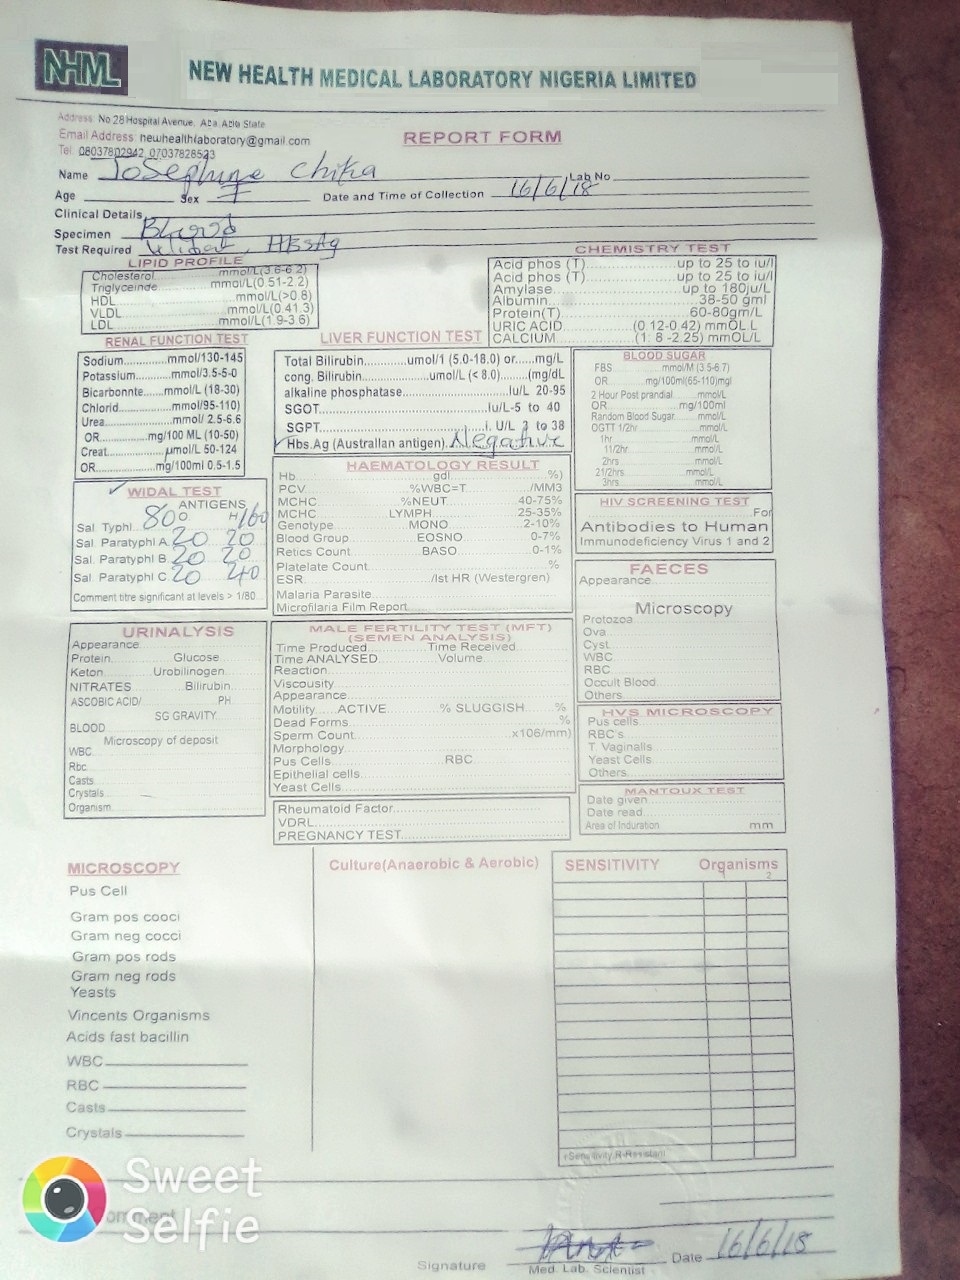 NHML
NEW HEALTH MEDICAL LABORATORY NIGERIA LIMITED
Address: No 28 Hospital Avenue, Aba, Abia State
Email Address: newhealthlaboratory@gmail.com
Tel. 08037802942, 07037828523
REPORT FORM
Name Josephine Chika Lab No
Age Sex F Date and Time of Collection 16/6/18
Clinical Details
Specimen Blood
Test Required Widal, HBsAg
LIPID PROFILE
Cholesterol mmol/L(3.6-6.2)
Triglyceinde mmol/L(0.51-2.2)
HDL mmol/L(>0.8)
VLDL mmol/L(0.41.3)
LDL mmol/L(1.9-3.6)
CHEMISTRY TEST
Acid phos (T) up to 25 to iu/l
Acid phos (T) up to 25 to iu/l
Amylase up to 180ju/L
Albumin 38-50 gml
Protein(T) 60-80gm/L
URIC ACID (0 12-0.42) mmOL L
CALCIUM (1: 8 -2.25) mmOL/L
RENAL FUNCTION TEST
Sodium mmol/130-145
Potassium mmol/3.5-5-0
Bicarbonnte mmol/L (18-30)
Chlorid mmol/95-110)
Urea mmol/ 2.5-6.6
OR mg/100 ML (10-50)
Creat µmol/L 50-124
OR mg/100ml 0.5-1.5
LIVER FUNCTION TEST
Total Bilirubin umol/1 (5.0-18.0) or mg/L
cong. Bilirubin umol/L (< 8.0) (mg/dL
alkaline phosphatase Iu/L 20-95
SGOT Iu/L-5 to 40
SGPT i. U/L 3 to 38
Hbs.Ag (Australlan antigen) Negative
BLOOD SUGAR
FBS mmol/M (3.5-6.7)
OR mg/100ml(65-110)mgl
2 Hour Post prandial mmol/L
OR mg/100ml
Random Blood Sugar mmol/L
OGTT 1/2hr mmol/L
1hr mmol/L
11/2hr mmol/L
2hrs mmol/L
21/2hrs mmol/L
3hrs mmol/L
WIDAL TEST
ANTIGENS
O H
Sal Typhl 80 160
Sal. Paratyphl A 20 20
Sal. Paratyphl B 20 20
Sal. Paratyphl C 20 40
Comment titre significant at levels > 1/80
HAEMATOLOGY RESULT
Hb gdl %)
PCV %WBC=T /MM3
MCHC %NEUT 40-75%
MCHC LYMPH 25-35%
Genotype MONO 2-10%
Blood Group EOSNO 0-7%
Retics Count BASO 0-1%
Platelate Count %
ESR /Ist HR (Westergren)
Malaria Parasite
Microfilaria Film Report
HIV SCREENING TEST
For
Antibodies to Human
Immunodeficiency Virus 1 and 2
FAECES
Appearance
Microscopy
Protozoa
Ova
Cyst
WBC
RBC
Occult Blood
Others
URINALYSIS
Appearance
Protein Glucose
Keton Urobilinogen
NITRATES Bilirubin
ASCOBIC ACID/ PH
SG GRAVITY
BLOOD
Microscopy of deposit
WBC
Rbc
Casts
Crystals
Organism
MALE FERTILITY TEST (MFT)
(SEMEN ANALYSIS)
Time Produced Time Received
Time ANALYSED Volume
Reaction
Viscousity
Appearance
Motility ACTIVE % SLUGGISH %
Dead Forms %
Sperm Count x106/mm)
Morphology
Pus Cells RBC
Epithelial cells
Yeast Cells
HVS MICROSCOPY
Pus cells
RBC's
T. Vaginalls
Yeast Cells
Others
MANTOUX TEST
Date given
Date read
Area of Induration mm
Rheumatoid Factor
VDRL
PREGNANCY TEST
MICROSCOPY
Pus Cell
Gram pos cooci
Gram neg cocci
Gram pos rods
Gram neg rods
Yeasts
Vincents Organisms
Acids fast bacillin
WBC
RBC
Casts
Crystals
Culture(Anaerobic & Aerobic)
SENSITIVITY Organisms
1 2
+Sensitivity,R-Resistant
Sweet
Selfie
Signature
Med. Lab. Scientist
Date 16/6/18